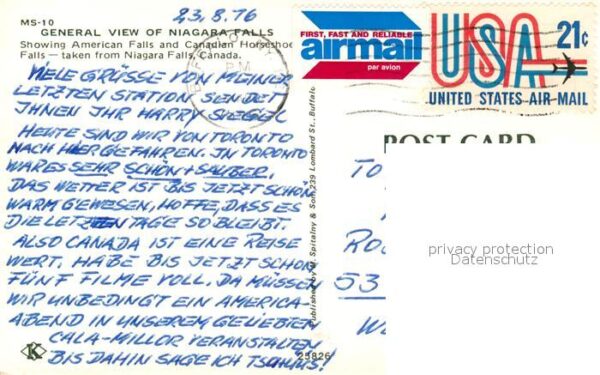 23.8.76
MS-10
GENERAL VIEW OF NIAGARA FALLS
Showing American Falls and Canadian Horseshoe
Falls — taken from Niagara Falls, Canada.
VIELE GRÜSSE VON MEINER
LETZTEN STATION SENDET
IHNEN IHR HARRY SIEGEL
HEUTE SIND WIR VON TORONTO
NACH HIER GEFAHREN. IN TORONTO
WAR ES SEHR SCHÖN + SAUBER.
DAS WETTER IST BIS JETZT SCHÖN
WARM GEWESEN, HOFFE, DASS ES
DIE LETZTEN TAGE SO BLEIBT.
ALSO CANADA IST EINE REISE
WERT. HABE BIS JETZT SCHON
FÜNF FILME VOLL. DA MÜSSEN
WIR UNBEDINGT EIN AMERICA-
ABEND IN UNSEREM GELIEBTEN
CALA-MILLOR VERANSTALTEN
BIS DAHIN SAGE ICH TSCHÜSS!
K
25826
Published by H. Spitalny & Son, 239 Lombard St., Buffalo
FIRST, FAST AND RELIABLE
airmail
par avion
USA 21¢
UNITED STATES AIR MAIL
PM
POST CARD
TO
RO
53
privacy protection
Datenschutz